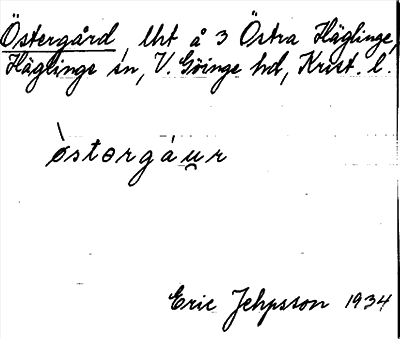 Östergård, lht å 3 Östra Häglinge,
Häglinge sn, V. Göinge hd, Krist. l.
òstərgáu̯r
Eric Jehpsson 1934